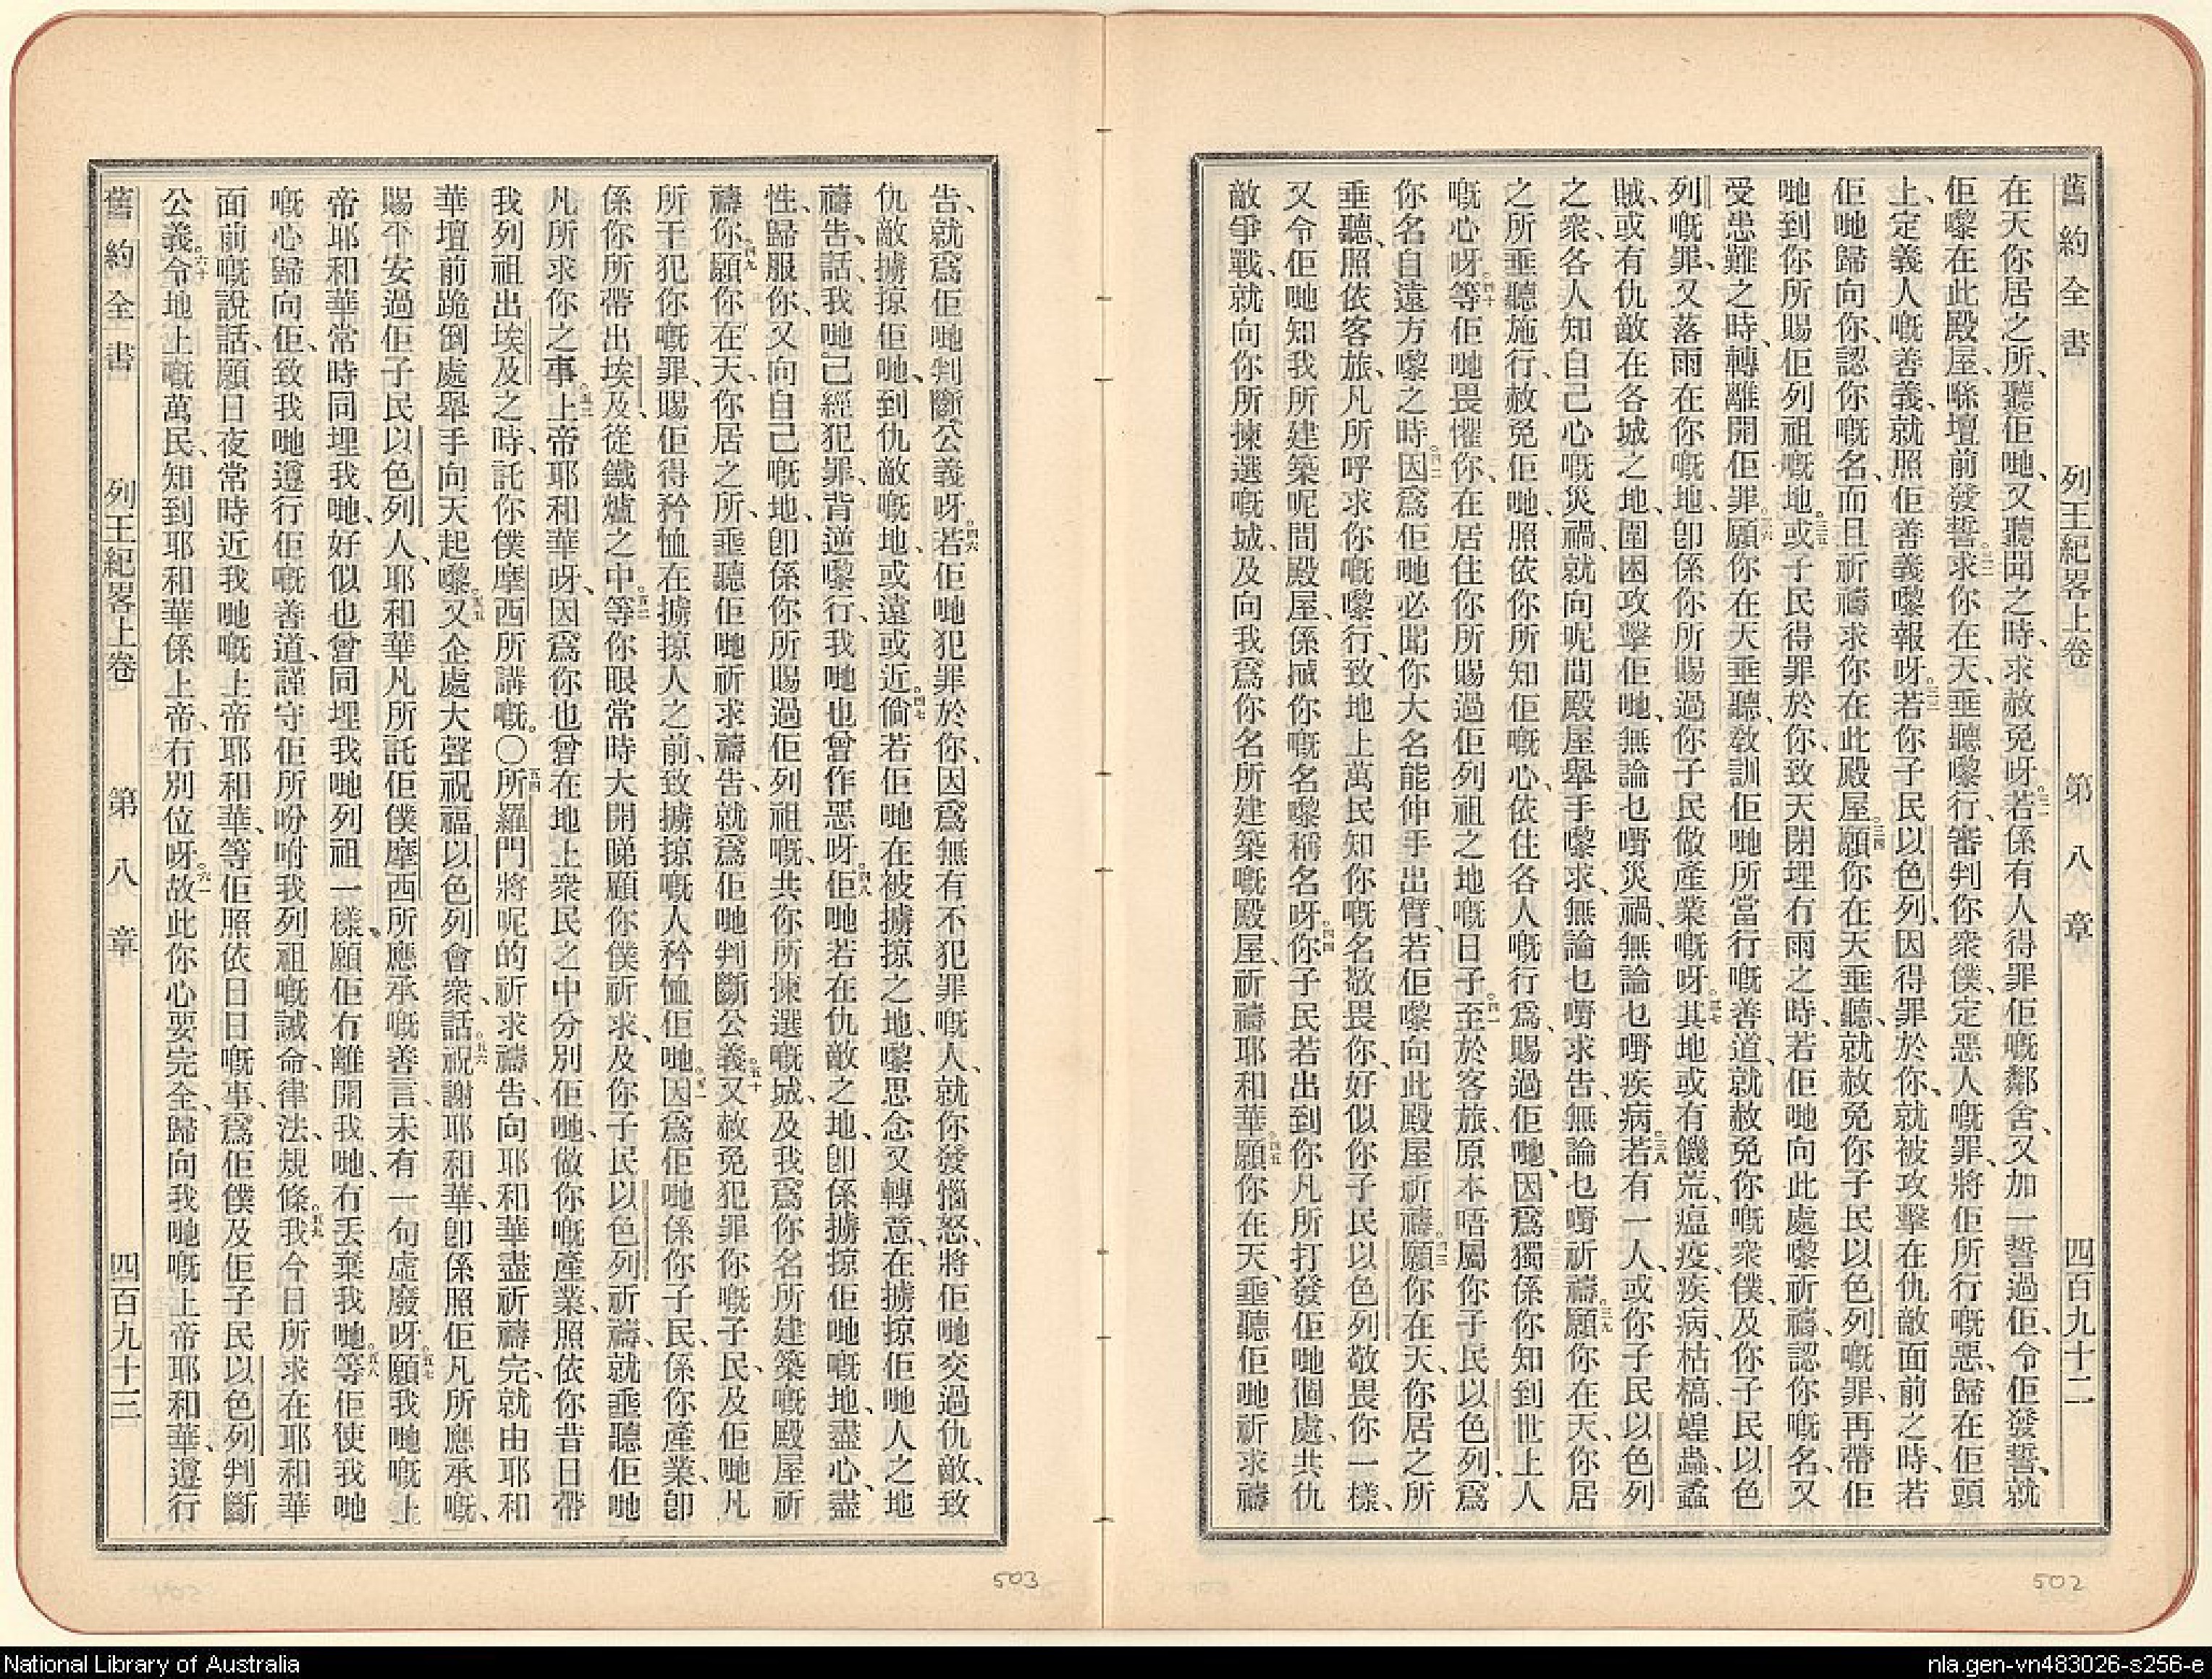 舊約全書　列王紀畧上卷　第八章　四百九十二
在天你居之所、聽佢哋、又聽聞之時、求赦免呀。三一若係有人得罪佢嘅鄰舍、又加一誓過佢、令佢發誓、就
佢嚟在此殿屋、喺壇前發誓。三二求你在天、垂聽嚟行、審判你衆僕、定惡人嘅罪、將佢所行嘅惡、歸在佢頭
上、定義人嘅善義、就照佢善義嚟報呀。三三若你子民以色列、因得罪於你、就被攻擊在仇敵面前之時、若
佢哋歸向你、認你嘅名、而且祈禱求你在此殿屋。三四願你在天垂聽、就赦免你子民以色列嘅罪、再帶佢
哋到你所賜佢列祖嘅地。三五或子民得罪於你、致天閉埋冇雨之時、若佢哋向此處嚟祈禱、認你嘅名、又
受患難之時、轉離開佢罪。三六願你在天垂聽、敎訓佢哋所當行嘅善道、就赦免你嘅衆僕、及你子民以色
列嘅罪、又落雨在你嘅地、卽係你所賜過你子民做產業嘅呀。三七其地或有饑荒、瘟疫、疾病、枯槁、蝗蟲、蟊
賊、或有仇敵在各城之地、圍困攻擊佢哋、無論乜嘢災禍、無論乜嘢疾病。三八若有一人、或你子民以色列
之衆、各人知自己心嘅災禍、就向呢間殿屋舉手嚟求、無論乜嘢求告、無論乜嘢祈禱。三九願你在天、你居
之所垂聽施行、赦免佢哋、照依你所知佢嘅心、依住各人嘅行爲、賜過佢哋、因爲獨係你知到世上人
嘅心呀。四十等佢哋畏懼你、在居住你所賜過佢列祖之地嘅日子。四一至於客旅、原本唔屬你子民以色列、爲
你名自遠方嚟之時。四二因爲佢哋必聞你大名能伸手出臂、若佢嚟向此殿屋祈禱。四三願你在天、你居之所
垂聽、照依客旅、凡所呼求你嘅嚟行、致地上萬民知你嘅名敬畏你、好似你子民以色列敬畏你一樣、
又令佢哋知我所建築呢間殿屋、係㨢你嘅名嚟稱名呀。四四你子民若出到你凡所打發佢哋個處、共仇
敵爭戰、就向你所揀選嘅城、及向我爲你名所建築嘅殿屋、祈禱耶和華。四五願你在天、垂聽佢哋祈求禱
告、就爲佢哋判斷公義呀。四六若佢哋犯罪於你、因爲無有不犯罪嘅人、就你發惱怒、將佢哋交過仇敵、致
仇敵擄掠佢哋、到仇敵嘅地、或遠或近。四七倘若佢哋在被擄掠之地、嚟思念又轉意、在擄掠佢哋人之地
禱告、話、我哋已經犯罪、背逆嚟行、我哋也曾作惡呀。四八佢哋若在仇敵之地、卽係擄掠佢哋嘅地、盡心、盡
性、歸服你、又向自己嘅地、卽係你所賜過佢列祖嘅、共你所揀選嘅城、及我爲你名所建築嘅殿屋祈
禱你。四九願你在天、你居之所、垂聽佢哋祈求禱告、就爲佢哋判斷公義。五十又赦免犯罪你嘅子民、及佢哋凡
所干犯你嘅罪、賜佢得矜恤在擄掠人之前、致擄掠嘅人矜恤佢哋。五一因爲佢哋係你子民、係你產業、卽
係你所帶出埃及、從鐵爐之中。五二等你眼常時大開睇顧你僕祈求、及你子民以色列祈禱、就垂聽佢哋
凡所求你之事。五三上帝耶和華呀、因爲你也曾在地上衆民之中分別佢哋、做你嘅產業、照依你昔日帶
我列祖出埃及之時、託你僕摩西所講嘅。〇五四所羅門將呢的祈求禱告、向耶和華盡祈禱完、就由耶和
華壇前跪倒處舉手向天起嚟。五五又企處大聲祝福以色列會衆、話。五六祝謝耶和華、卽係照佢凡所應承嘅、
賜平安過佢子民以色列人、耶和華凡所託佢僕摩西所應承嘅善言、未有一句虛廢呀。五七願我哋嘅上
帝耶和華常時同埋我哋、好似也曾同埋我哋列祖一樣、願佢冇離開我哋、冇丟棄我哋。五八等佢使我哋
嘅心歸向佢、致我哋遵行佢嘅善道、謹守佢所吩咐我列祖嘅誡命、律法、規條。五九我今日所求在耶和華
面前嘅說話、願日夜常時近我哋嘅上帝耶和華、等佢照依日日嘅事、爲佢僕及佢子民以色列判斷
公義。六十令地上嘅萬民、知到耶和華係上帝、冇別位呀。六一故此你心要完全、歸向我哋嘅上帝耶和華、遵行
舊約全書　列王紀畧上卷　第八章　四百九十三
503
502
National Library of Australia
nla.gen-vn483026-s256-e